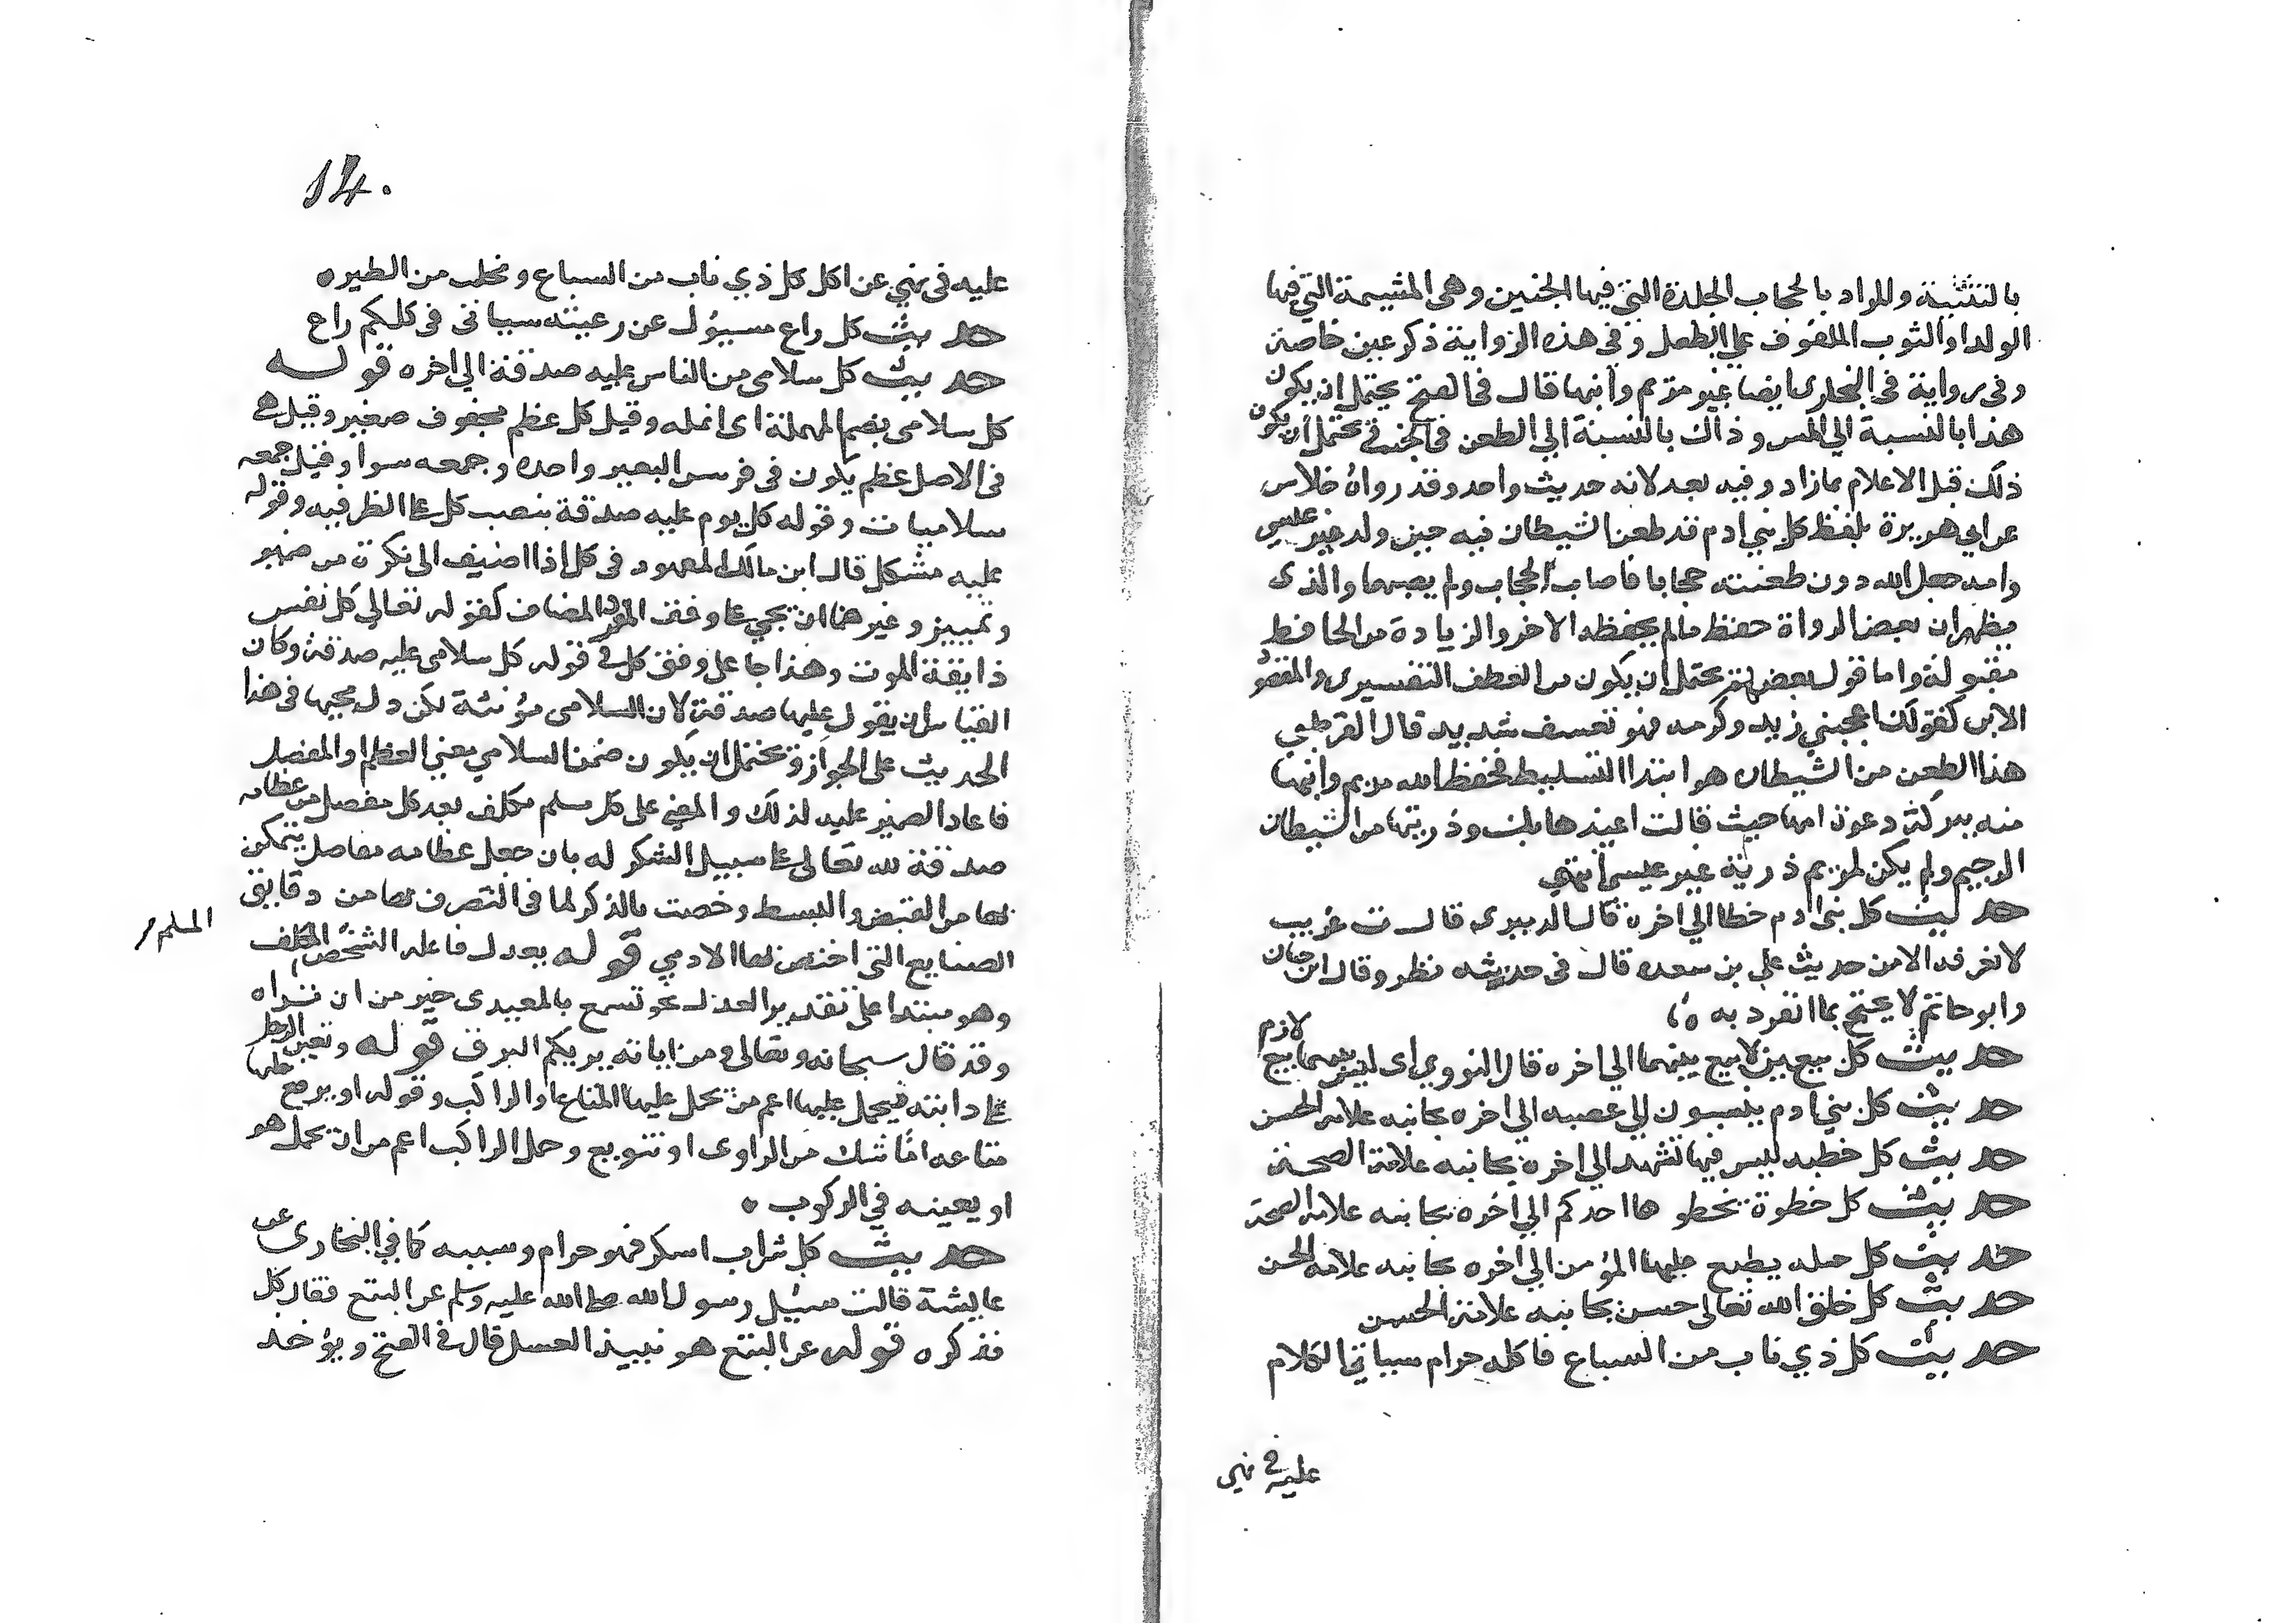 بالتثنية والمراد بالحجاب الجلدة التي فيها الجنين وهي المشيمة التي فيها
الولد او الثوب الملفوف على الطفل وفي هذه الرواية ذكر عيسى خاصة
وفي رواية في البخاري ايضا غير مريم وابنها قال في الفتح يحتمل ان يكون
هذا بالنسبة الي المس وذاك بالنسبة الي الطعن في الجنب ويحتمل ان يكون
ذلك قبل الاعلام بما زاد وفيه بعد لانه حديث واحد وقد رواه خلاس
عن ابي هريرة بلفظ كل بني ادم قد طعن الشيطان فيه حين ولد غير عيسى
وامه جعل الله دون طعنته حجابا فاصاب الحجاب ولم يصبهما والذى
يظهر ان بعض الرواة حفظ ما لم يحفظه الاخر والزيادة من الحافظ
مقبولة واما قول بعضهم يحتمل ان يكون من العطف التفسيرى والمقصود
الابن كقولك اعجبني زيد وكرمه فهو تعسف شديد قال القرطبي
هذا الطعن من الشيطان هو ابتدا التسليط فحفظ الله مريم وابنها
منه ببركة دعوة امها حيث قالت اعيذها بك وذريتها من الشيطان
الرجيم ولم يكن لمريم ذرية غير عيسى انتهي
حديث كل بنى ادم خطا الي اخره قال الدميرى قال ت غريب
لا نعرفه الا من حديث علي بن سعده قال في حديثه نظر وقال ابن حبان
وابو حاتم لا يحتج بما انفرد به
حديث كل بيع بين لا بيع بينهما الي اخره قال النووي اى ليس بينهما بيع لازم
حديث كل بني ادم ينتسبون الي عصبه الي اخره بجانبه علامة الحسن
حديث كل خطبه ليس فيها تشهد الي اخره بجانبه علامة الصحة
حديث كل خطوة يخطوها احدكم الي اخره بجانبه علامة الصحة
حديث كل خله يطبع عليها المؤمن الي اخره بجانبه علامة الحسن
حديث كل خلق الله تعالى حسن بجانبه علامة الحسن
حديث كل ذي ناب من السباع فاكله حرام سياتي الكلام
عليه في نهي
14.
عليه في نهي عن اكل كل ذي ناب من السباع ومخلب من الطير
حديث كل راع مسيول عن رعيته سياتي في كلكم راع
حديث كل سلامى من الناس عليه صدقة الي اخره قوله
كل سلامى بضم المهملة اى انمله وقيل كل عظم مجوف صغير وقيل هي
في الاصل عظم يكون في فرسن البعير واحده وجمعه سوا وقيل جمعه
سلاميات وقوله كل يوم عليه صدقة بنصب كل على الظرفيه وقوله
عليه مشكل قال ابن مالك المعهود في كل اذا اضيف الى نكرة من ضمير
وتمييز وغيرهما ان يجي على وفق المضاف كقوله تعالي كل نفس
ذايقة الموت وهذا جا على وفق كل في قوله كل سلامى عليه صدقة وكان
القياس ان يقول عليها صدقة لان السلامى مؤنثة لكن دل مجيها في هذا
الحديث على الجواز ويحتمل ان يكون ضمن السلامي معني العظم او المفصل
فاعاد الضمير عليه لذلك والمعني على كل مسلم مكلف بعد كل مفصل من عظامه
صدقة لله تعالى على سبيل الشكر له بان جعل عظامه مفاصل يتمكن
بها من القبض والبسط وخصت بالذكر لما في التصرف بها من دقايق
الصنايع التي اختص بها الادمي قوله يعدل فاعله الشخص المكلف
المسلم
وهو مبتدا على تقدير العدل نحو تسمع بالمعيدى خير من ان تراه
وقد قال سبحانه وتعالى ومن اياته يريكم البرق قوله وتعين الرجل
على دابته فيحمل عليها اعم من يحمل عليها المتاع او الراكب وقوله او يرفع عليها
متاعه اما شك من الراوى او تنويع وحمل الراكب اعم من ان يحمل هو
او يعينه في الركوب
حديث كل شراب اسكر فهو حرام وسببه كما في البخارى عن
عايشة قالت سيُل رسول الله صلى الله عليه وسلم عن البتع فقال كل
فذكره قوله عن البتع هو نبيذ العسل قال في الفتح ويؤخذ